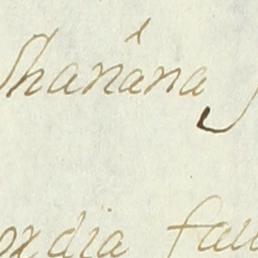 Shanâna
ordia fau